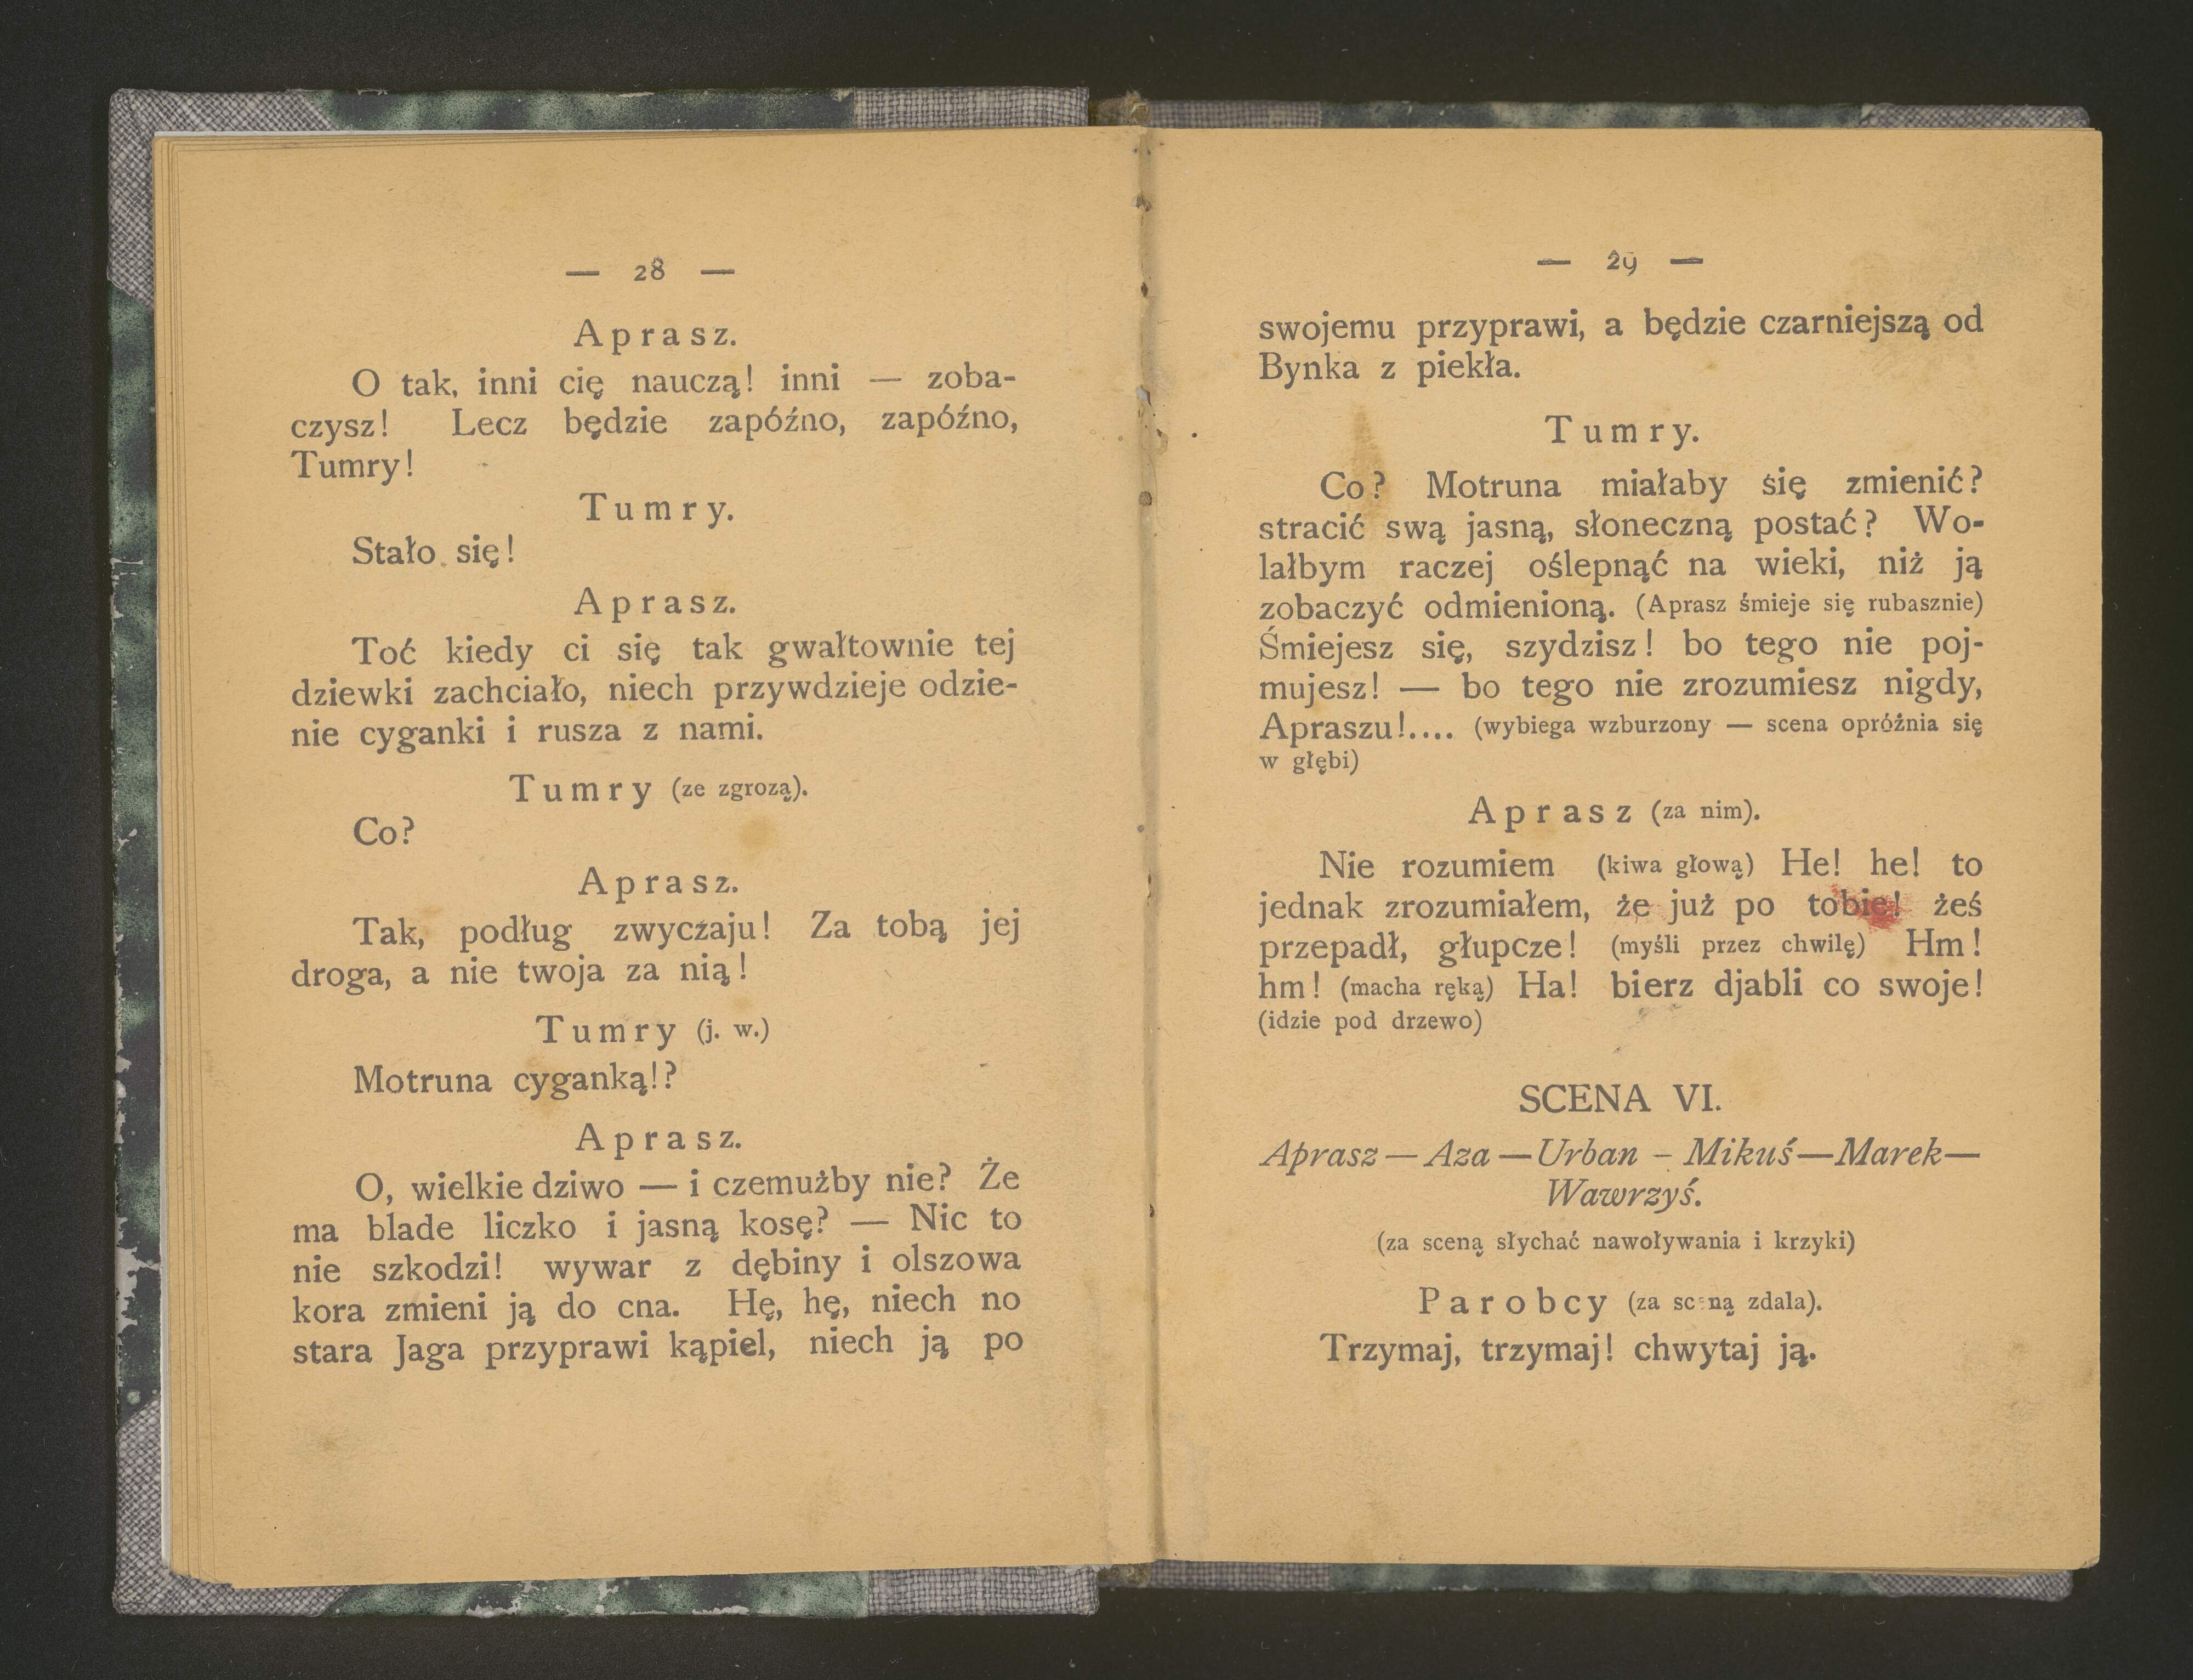 — 28 —
Aprasz.
O tak, inni cię nauczą! inni — zoba-
czysz! Lecz będzie zapóźno, zapóźno,
Tumry!
Tumry.
Stało się!
Aprasz.
Toć kiedy ci się tak gwałtownie tej
dziewki zachciało, niech przywdzieje odzie-
nie cyganki i rusza z nami.
Tumry (ze zgrozą).
Co?
Aprasz.
Tak, podług zwyczaju! Za tobą jej
droga, a nie twoja za nią!
Tumry (j. w.)
Motruna cyganką!?
Aprasz.
O, wielkie dziwo — i czemużby nie? Że
ma blade liczko i jasną kosę? — Nic to
nie szkodzi! wywar z dębiny i olszowa
kora zmieni ją do cna. Hę, hę, niech no
stara Jaga przyprawi kąpiel, niech ją po
— 29 —
swojemu przyprawi, a będzie czarniejszą od
Bynka z piekła.
Tumry.
Co? Motruna miałaby się zmienić?
stracić swą jasną, słoneczną postać? Wo-
lałbym raczej oślepnąć na wieki, niż ją
zobaczyć odmienioną. (Aprasz śmieje się rubasznie)
Śmiejesz się, szydzisz! bo tego nie poj-
mujesz! — bo tego nie zrozumiesz nigdy,
Apraszu!.... (wybiega wzburzony — scena opróżnia się
w głębi)
Aprasz (za nim).
Nie rozumiem (kiwa głową) He! he! to
jednak zrozumiałem, że już po tobie! żeś
przepadł, głupcze! (myśli przez chwilę) Hm!
hm! (macha ręką) Ha! bierz djabli co swoje!
(idzie pod drzewo)
SCENA VI.
Aprasz — Aza — Urban – Mikuś — Marek —
Wawrzyś.
(za sceną słychać nawoływania i krzyki)
Parobcy (za sceną zdala).
Trzymaj, trzymaj! chwytaj ją.